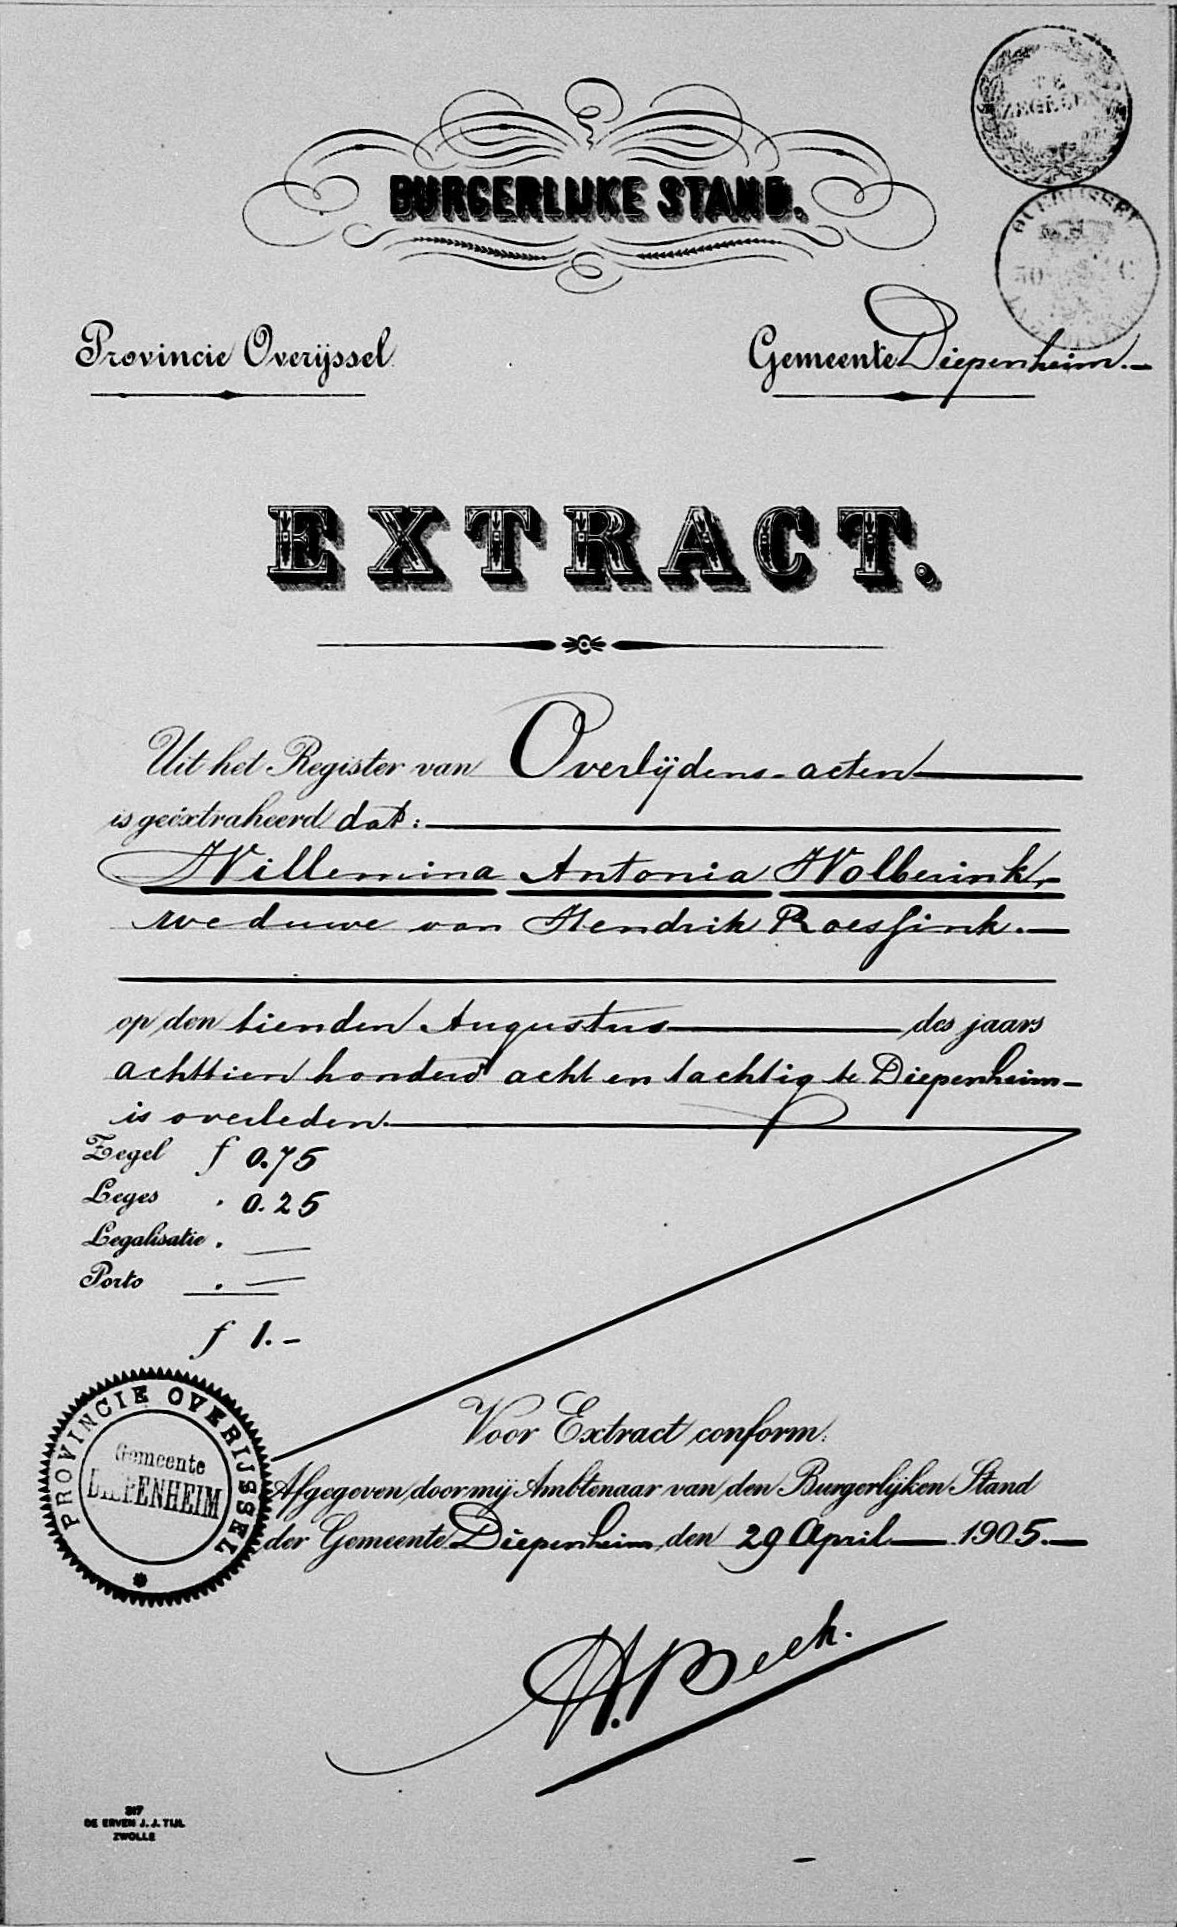 BURGERLIJKE STAND.
OVERIJSSEL
Provincie Overijssel
Gemeente Diepenheim.
EXTRACT.
Uit het Register van Overlijdens-acten
is geëxtraheerd dat:
Willemina Antonia Wolberink,
weduwe van Hendrik Roessink.
op den tienden Augustus des jaars
achttien honderd acht en tachtig te Diepenheim
is overleden.
Zegel f 0.75
Leges . 0.25
Legalisatie . —
Porto . —
f 1.-
PROVINCIE OVERIJSSEL
Gemeente
DIEPENHEIM
Voor Extract conform.
Afgegeven door mij Ambtenaar van den Burgerlijken Stand
der Gemeente Diepenheim, den 29 April 1905.
H. Beek.
317
DE ERVEN J. J. TIJL
ZWOLLE